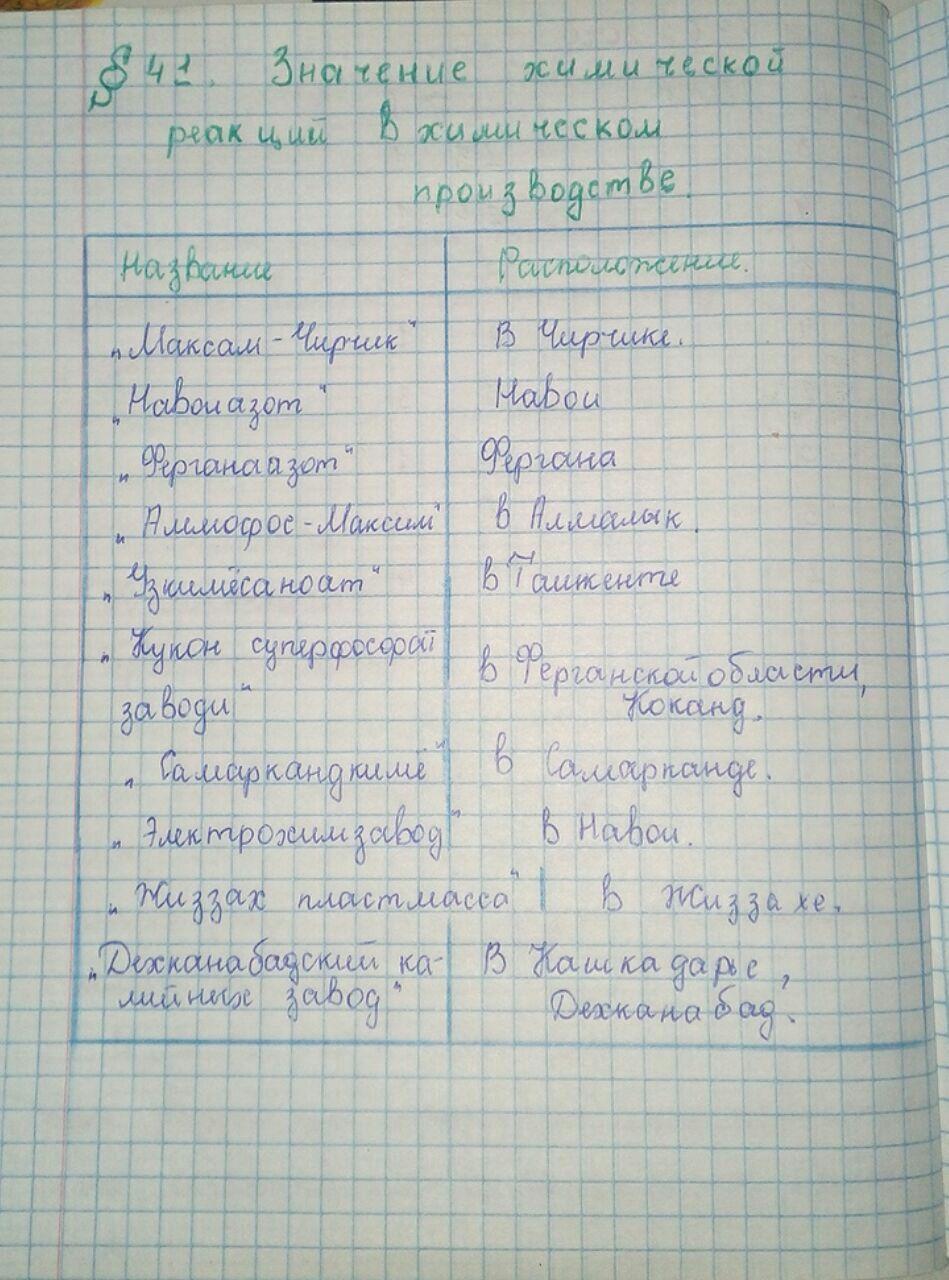 § 41. Значение химической
реакций в химическом
производстве.
Название Расположение.
„Максам-Чирчик" В Чирчике.
„Навоиазот" Навои
„Ферганаазот" Фергана
„Аммофос-Максим" в Алмалык.
„Узкимёсаноат" в Ташкенте
„Кукон суперфосфат
заводи" в Ферганской области,
Коканд.
„Самаркандкимё" в Самарканде.
„Электрохимзавод" в Навои.
„Жиззах пластмасса" в Жиззахе.
„Дехканабадский ка- В Кашкадарье,
лийных завод" Дехканабад.